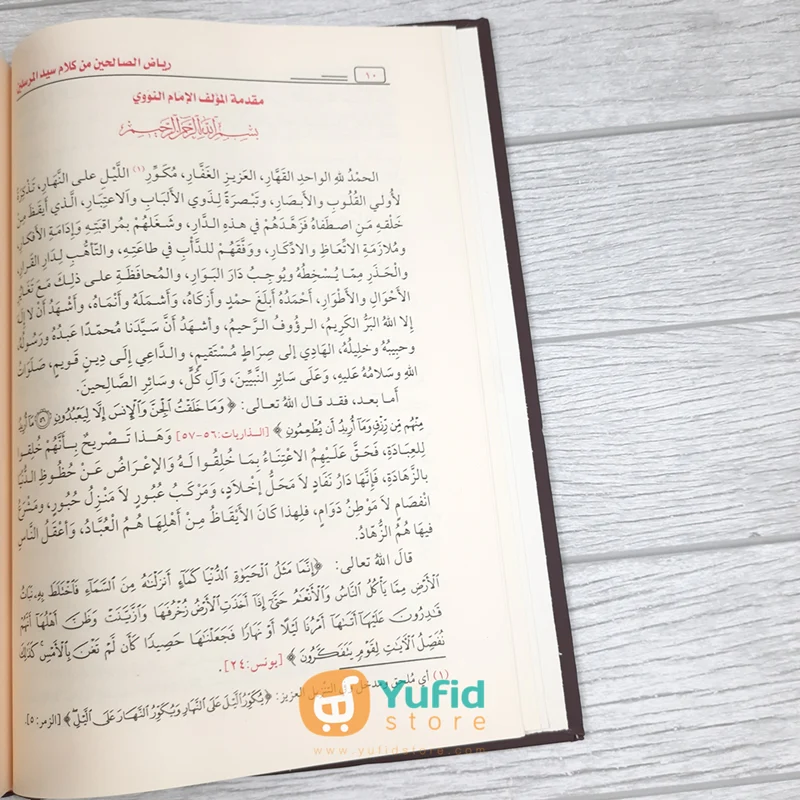 رياض الصالحين من كلام سيد المرسلين
١٠
مقدمة المؤلف الإمام النووي
بِسْمِ اللَّهِ الرَّحْمَٰنِ الرَّحِيمِ
الحمْدُ للهِ الواحِدِ القَهَّارِ، العَزيزِ الغَفَّارِ، مُكَوِّرِ(١) اللَّيْلِ على النَّهَارِ، تَذْكِرَةً
لأُولي القُلُوبِ والأَبصَارِ، وتَبْصرَةً لِذَوي الأَلبَابِ والاعتِبَارِ، الَّذي أَيقَظَ مِنْ
خَلْقهِ مَنِ اصطَفاهُ فَزَهَّدَهُمْ في هذهِ الدَّارِ، وشَغَلهُمْ بمُراقبَتِهِ وَإِدَامَةِ الأَفكارِ،
ومُلازَمَةِ الاتِّعَاظِ والادِّكارِ، ووَفَّقَهُمْ للدَّأْبِ في طاعَتِهِ، والتَّأهُّبِ لِدَارِ القَرارِ،
والْحَذَرِ مِمّا يُسْخِطُهُ ويُوجِبُ دَارَ البَوَارِ، والمُحافَظَةِ على ذلِكَ مَعَ تَغَايُرِ
الأَحْوَالِ والأَطْوَارِ، أَحْمَدُهُ أَبلَغَ حمْدٍ وأَزكَاهُ، وَأَشمَلَهُ وأَنْمَاهُ، وأَشْهَدُ أَنْ لا إِلَهَ
إِلا اللهُ البَرُّ الكَرِيمُ، الرؤُوفُ الرَّحيمُ، وأشهَدُ أَنَّ سَيَّدَنا مُحمّدًا عَبدُهُ ورَسُولُهُ،
وحبِيبُهُ وخلِيلُهُ، الهَادِي إلى صِرَاطٍ مُسْتَقيمٍ، والدَّاعِي إِلَى دِينٍ قَويمٍ، صَلَوَاتُ
اللهِ وسَلامُهُ عَليهِ، وَعَلَى سَائِرِ النَّبيِّينَ، وَآلِ كُلٍّ، وسَائرِ الصَّالحينَ.
أَما بعد، فقد قال اللهُ تعالى: ﴿وَمَا خَلَقْتُ الْجِنَّ وَالْإِنسَ إِلَّا لِيَعْبُدُونِ ۝٥٦ مَا أُرِيدُ
مِنْهُم مِّن رِّزْقٍ وَمَا أُرِيدُ أَن يُطْعِمُونِ﴾ [الذاريات: ٥٦-٥٧] وَهَذا تَصْريحٌ بأَنَّهُمْ خُلِقوا
لِلعِبَادَةِ، فَحَقَّ عَلَيْهِمُ الاعْتِنَاءُ بِمَا خُلِقُوا لَهُ وَالإِعْرَاضُ عَنْ حُظُوظِ الدُّنْيَا
بالزَّهَادَةِ، فَإِنَّهَا دَارُ نَفَادٍ لاَ مَحَلُّ إِخْلاَدٍ، وَمَرْكَبُ عُبُورٍ لاَ مَنْزِلُ حُبُورٍ، ومَشْرَعُ
انْفصَامٍ لاَ مَوْطِنُ دَوَامٍ، فلِهذا كَانَ الأَيْقَاظُ مِنْ أَهْلِهَا هُمُ العُبَّادُ، وَأعْقَلُ النَّاسِ
فيهَا هُمُ الزُّهّادُ.
قالَ اللهُ تعالى: ﴿إِنَّمَا مَثَلُ الْحَيَوٰةِ الدُّنْيَا كَمَاءٍ أَنزَلْنَٰهُ مِنَ السَّمَاءِ فَاخْتَلَطَ بِهِ نَبَاتُ
الْأَرْضِ مِمَّا يَأْكُلُ النَّاسُ وَالْأَنْعَٰمُ حَتَّىٰ إِذَا أَخَذَتِ الْأَرْضُ زُخْرُفَهَا وَازَّيَّنَتْ وَظَنَّ أَهْلُهَا أَنَّهُمْ
قَٰدِرُونَ عَلَيْهَا أَتَىٰهَا أَمْرُنَا لَيْلًا أَوْ نَهَارًا فَجَعَلْنَٰهَا حَصِيدًا كَأَن لَّمْ تَغْنَ بِالْأَمْسِ كَذَٰلِكَ
نُفَصِّلُ الْآيَٰتِ لِقَوْمٍ يَتَفَكَّرُونَ﴾ [يونس: ٢٤].
(١) أي مُلحِق ومدخل العزيز: ﴿يُكَوِّرُ اللَّيْلَ عَلَى النَّهَارِ وَيُكَوِّرُ النَّهَارَ عَلَى اللَّيْلِ﴾ [الزمر: ٥].
Yufid
store
www.yufidstore.com